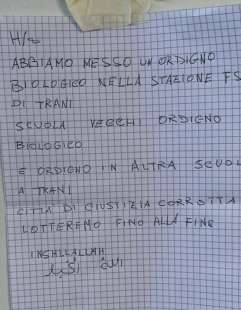 ABBIAMO MESSO UN ORDIGNO
BIOLOGICO NELLA STAZIONE FS
DI TRANI
SCUOLA VECCHI ORDIGNO
BIOLOGICO
E ORDIGNO IN ALTRA SCUOL
A TRANI
CITTÀ DI GIUSTIZIA CORROTTA
LOTTEREMO FINO ALLA FINE
INSHLLALLAH
الله اكبر